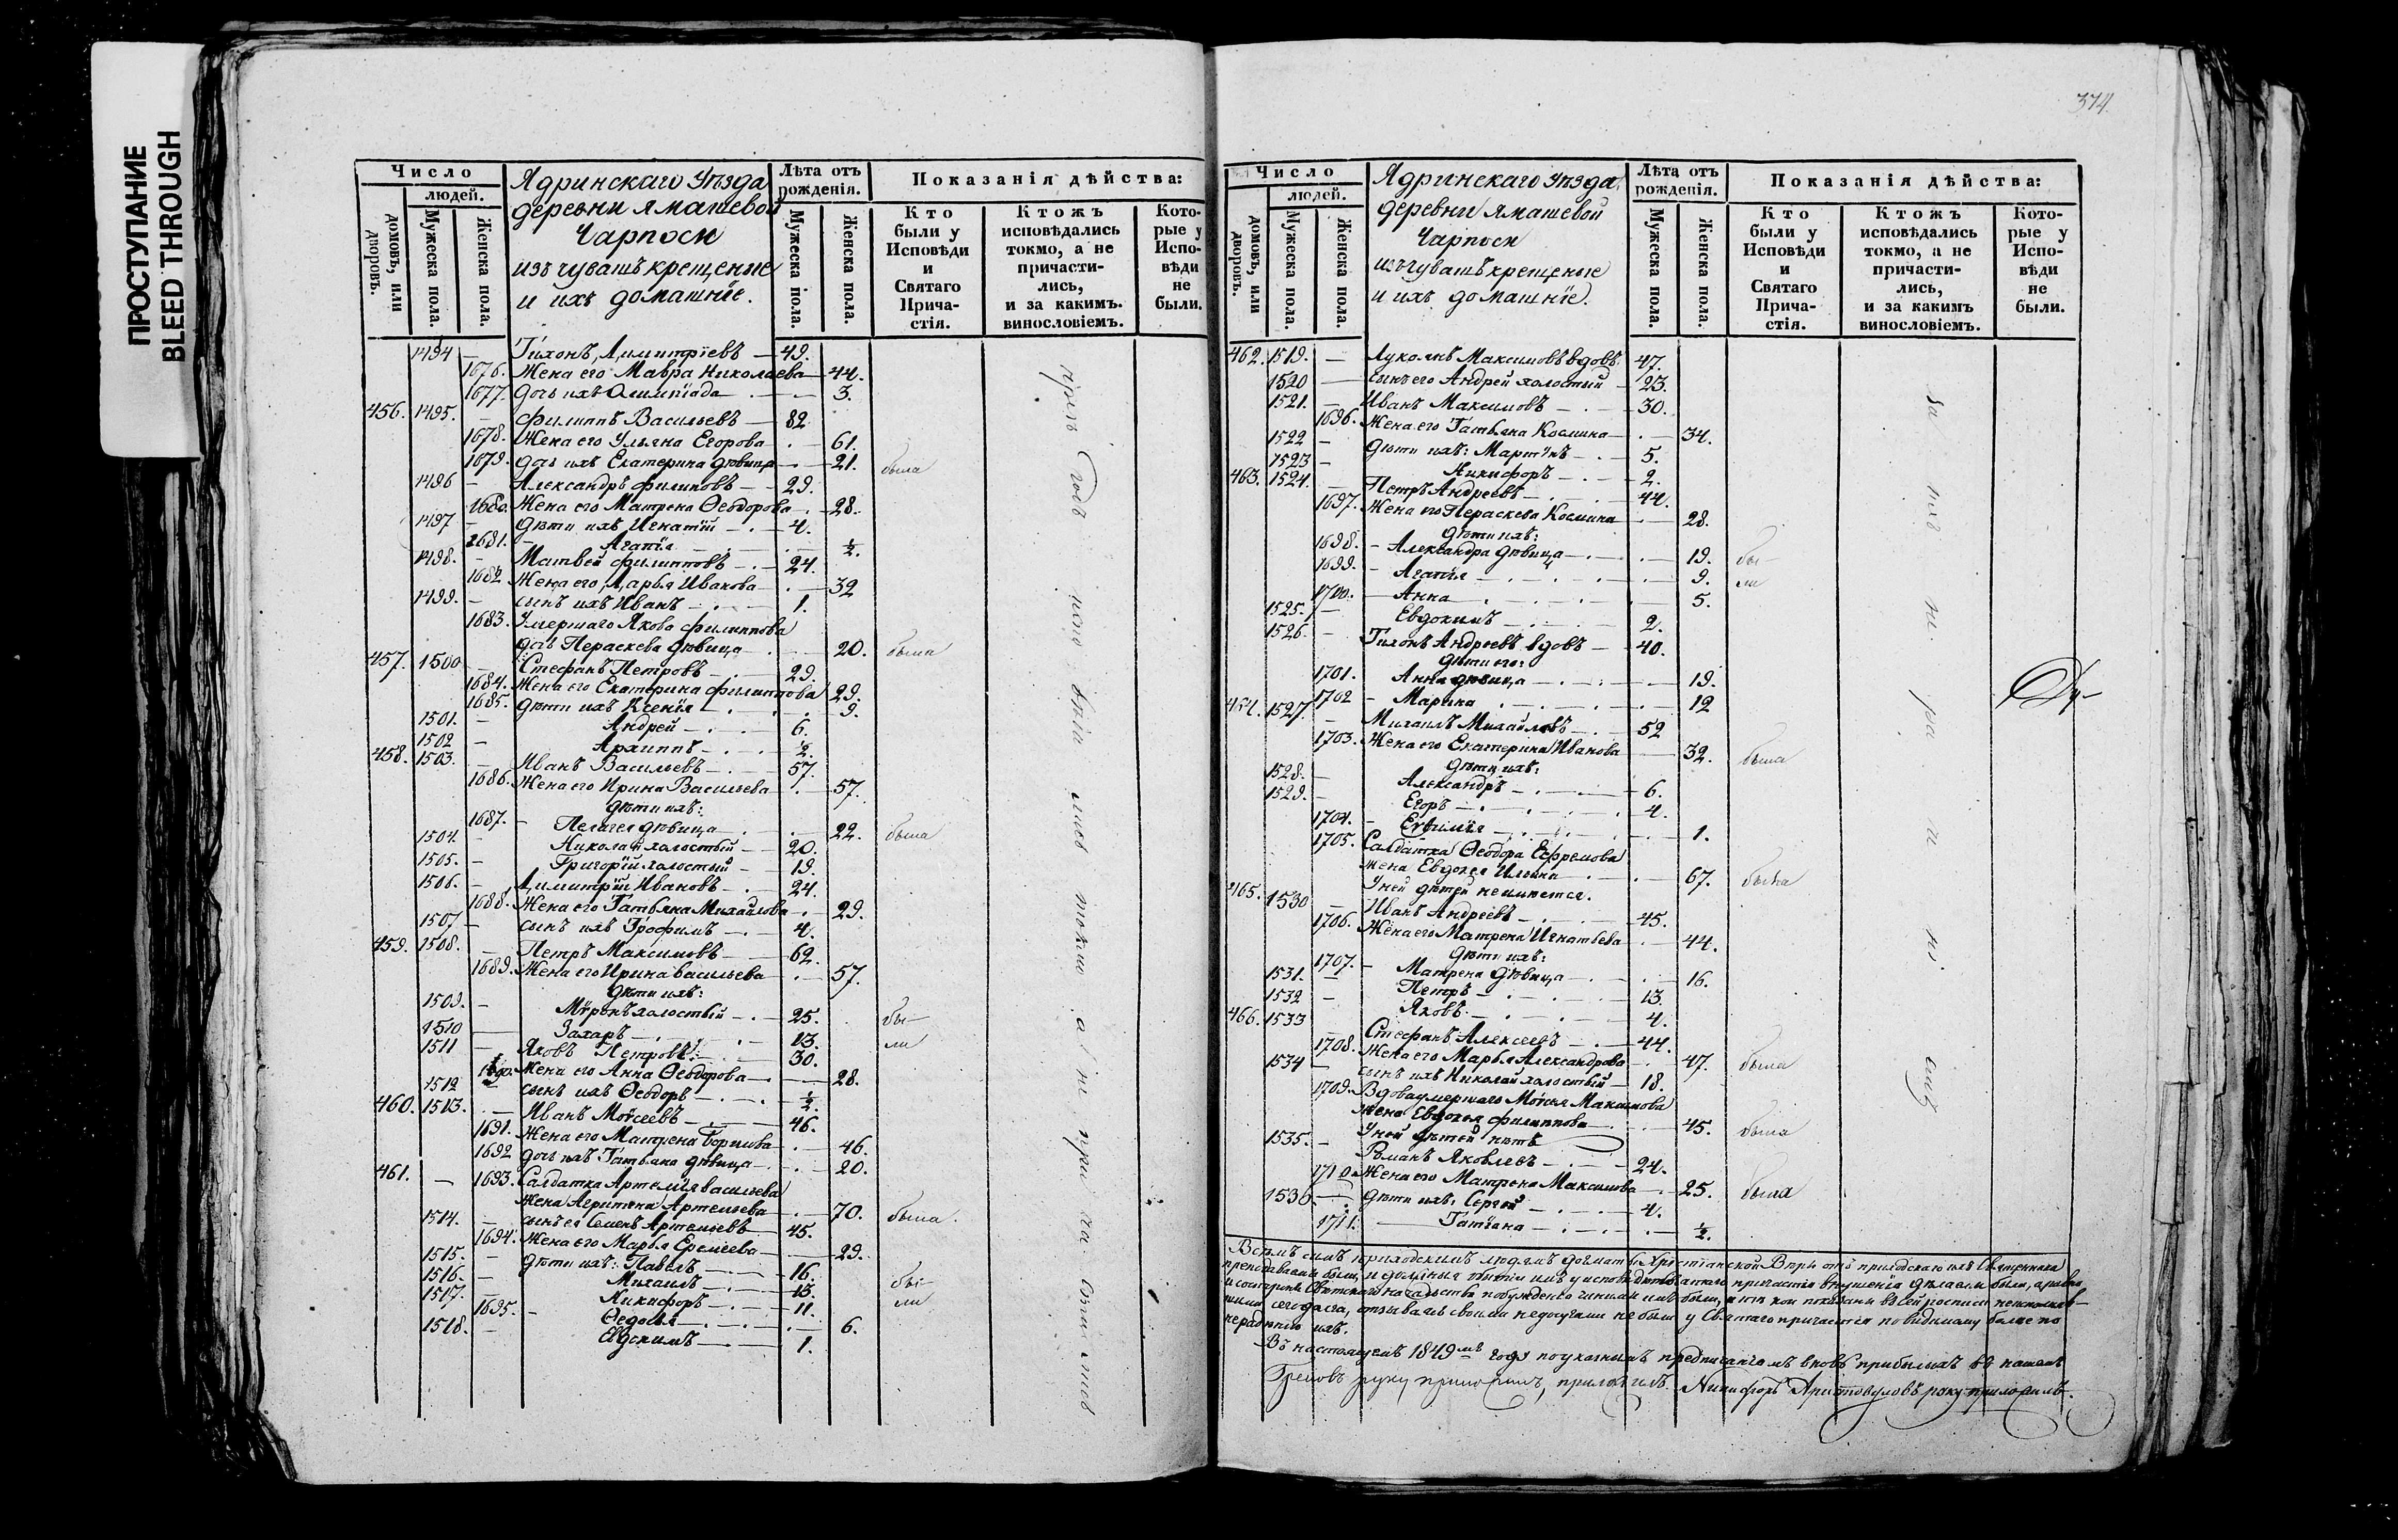 ПРОСТУПАНИЕ
BLEED THROUGH
Число
людей.
домовъ, или дворовъ.
Мужеска пола.
Женска пола.
Ядринскаго Уѣзда
деревни Ямашевой
Чарпоси
изъ чувашъ крещеные
и ихъ домашніе.
Лѣта отъ рожденія.
Мужеска пола.
Женска пола.
Показанія дѣйства:
Кто были у Исповѣди и Святаго Причастія.
Ктожъ исповѣдались токмо, а не причастились, и за какимъ. винословіемъ.
Которые у Исповѣди не были.
1494 — Тихонъ Димитріевъ — 49.
1676. Жена его Мавра Николаева — 44.
1677. дочь ихъ Олимпіада — 3.
456. 1495. Филиппъ Васильевъ — 82
1678. Жена его Ульяна Егорова — 61.
1679. дочь ихъ Екатерина дѣвица — 21. была
1496 — Александръ Филиповъ — 29.
1680. Жена его Матрена Ѳеодорова — 28.
1497 — дѣти ихъ Игнатій — 4.
1681. — Агапія — ½.
1498. — Матвей Филипповъ — 24.
1682 Жена его Дарья Иванова — 32
1499. — сынъ ихъ Иванъ — 1.
1683. Умершаго Якова Филиппова
дочь Пераскева дѣвица — 20. была
457. 1500 — Стефанъ Петровъ — 29.
1684. Жена его Екатерина Филиппова 29.
1685. дѣти ихъ Ксенія — 9.
1501. — Андрей — 6.
1502 — Архиппъ — ½.
458. 1503. — Иванъ Васильевъ — 57.
1686. Жена его Ирина Васильева — 57.
дѣти ихъ:
1687. — Пелагея дѣвица — 22. была
1504. — Николай холостый — 20.
1505. — Григорій холостый — 19.
1506. — Димитрій Ивановъ — 24.
1688. Жена его Татьяна Михайлова — 29.
1507 — сынъ ихъ Трофимъ — 4.
459. 1508. Петръ Максимовъ — 62.
1689. Жена его Ирина Васильева — 57.
дѣти ихъ:
1509. — Миронъ холостый — 25. бы-
1510 — Захаръ — 13. ли
1511 — Яковъ Петровъ — 30.
1690. Жена его Анна Ѳеодорова — 28.
1512 — сынъ ихъ Ѳеодоръ — ½.
460. 1513. — Иванъ Моисеевъ — 46.
1691. Жена его Матрена Борисова — 46.
1692 дочь ихъ Татьяна дѣвица — 20.
461. — 1693. Салдатка Артемія Васильева
жена Агрипина Артемьева — 70. была.
1514. — сынъ ея Семенъ Артемьевъ — 45.
1694. Жена его Марья Еремеева — 29.
1515. — дѣти ихъ: Павелъ — 16.
1516. — Михаилъ — 13. бы-
1517. — Никифоръ — 11. ли
1695. — Ѳедосья — 6.
1518. — Евдокимъ — 1.
374.
Число
людей.
домовъ, или дворовъ.
Мужеска пола.
Женска пола.
Ядринскаго Уѣзда,
деревни Ямашевой
Чарпоси
изъ чувашъ крещеные
и ихъ домашніе.
Лѣта отъ рожденія.
Мужеска пола.
Женска пола.
Показанія дѣйства:
Кто были у Исповѣди и Святаго Причастія.
Ктожъ исповѣдались токмо, а не причастились, и за какимъ винословіемъ.
Которые у Исповѣди не были.
462. 1519. — Лукоянъ Максимовъ вдовъ. 47.
1520 — сынъ его Андрей холостый — 23.
1521. — Иванъ Максимовъ — 30.
1696. Жена его Татьяна Космина — 34.
1522 — дѣти ихъ: Мартинъ — 5.
1523 — Никифоръ — 2.
463. 1524. — Петръ Андреевъ — 44.
1697. Жена его Пераскева Космина — 28.
дѣти ихъ:
1698. — Александра дѣвица — 19. бы-
1699. — Агапія — 9. ли
1700. — Анна — 5.
1525. — Евдокимъ — 2.
1526. — Тихонъ Андреевъ вдовъ — 40.
дѣти его:
1701. Анна дѣвица — 19.
1702 — Марина — 12
464. 1527. — Михаилъ Михайловъ — 52
1703. Жена его Екатерина Иванова — 32. была
дѣти ихъ:
1528. — Александръ — 6.
1529. — Егоръ — 4.
1704. — Евѳимія — 1.
1705. Салдатка Ѳеодора Ефремова
жена Евдокея Ильина — 67. была
У ней дѣтей неимеется.
465. 1530 — Иванъ Андреевъ — 45.
1706. Жена его Матрена Игнатьева — 44.
дѣти ихъ:
1707. — Матрена дѣвица — 16.
1531. — Петръ — 13.
1532 — Яковъ — 4.
466. 1533 — Стефанъ Алексеевъ — 44.
1708. Жена его Марья Александрова — 47. была
1534 — сынъ ихъ Николай холостый — 18.
1709. Вдова умершаго Мойсея Максимова
жена Евдокея Филиппова — 45. была
У ней дѣтей нѣтъ
1535. — Романъ Яковлевъ — 24.
1710. Жена его Матрена Максимова — 25. была
1536 — дѣти ихъ: Сергей — 4.
1711. — Татіана — ½.
Всѣмъ симъ приходскимъ людямъ догматы Христіанской Вѣры отъ приходскаго ихъ Священника
преподаваемы были, и должныя
нерадѣнію ихъ.
Въ настоящемъ 1849мъ году по указнымъ предписаніямъ вновь прибылыхъ въ нашемъ
руку приложилъ. Никифоръ Аристовуловъ руку приложилъ.